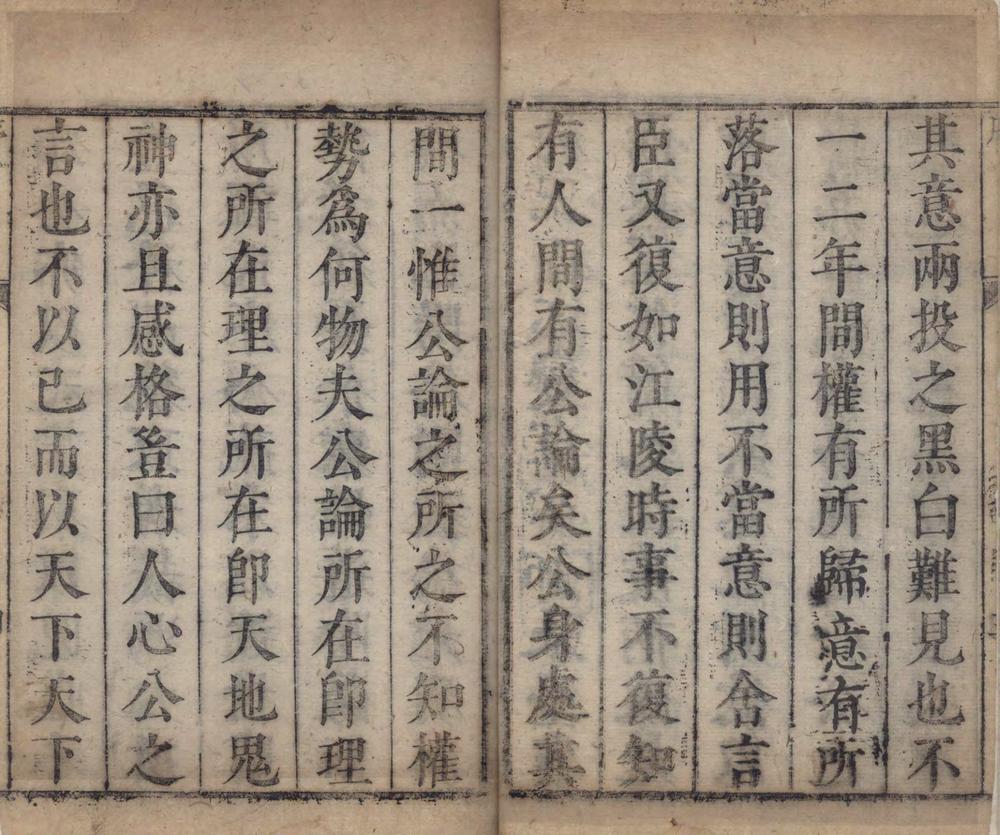 其意兩投之黑白難見也不
一二年間權有所歸意有所
落當意則用不當意則舍言
臣又復如江陵時事不復知
有人間有公論矣公身處其
間一惟公論之所之不知權
勢爲何物夫公論所在卽理
之所在理之所在卽天地鬼
神亦且感格豈曰人心公之
言也不以己而以天下天下